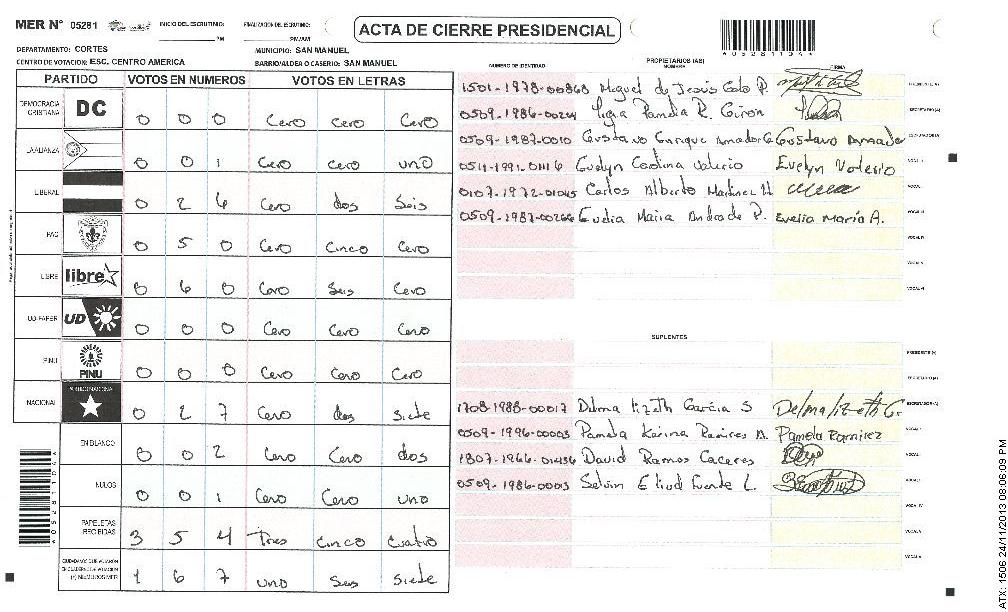 MER N° 05281 INICIO DEL ESCRUTINIO: PM FINALIZACION DEL ESCRUTINIO: PM/AM ACTA DE CIERRE PRESIDENCIAL
*05281104*
DEPARTAMENTO: CORTES MUNICIPIO: SAN MANUEL
CENTRO DE VOTACION: ESC. CENTRO AMERICA BARRIO/ALDEA O CASERIO: SAN MANUEL
PARTIDO VOTOS EN NUMEROS VOTOS EN LETRAS
DEMOCRACIA CRISTIANA DC 0 0 0 Cero Cero Cero
LA ALIANZA 0 0 1 Cero Cero uno
LIBERAL 0 2 6 Cero dos Seis
PAC 0 5 0 Cero Cinco Cero
LIBRE libre 0 6 0 Cero Seis Cero
UD-FAPER UD 0 0 0 Cero Cero Cero
PINU PINU 0 0 0 Cero Cero Cero
NACIONAL 0 2 7 Cero dos siete
EN BLANCO 0 0 2 Cero Cero dos
NULOS 0 0 1 Cero Cero uno
PAPELETAS RECIBIDAS 3 5 4 Tres cinco cuatro
1 6 7 uno Seis siete
NUMERO DE IDENTIDAD PROPIETARIOS (AS) NOMBRE FIRMA
1501-1978-00868 Miguel de Jesús P. PRESIDENTE (A)
Ligia Pamela R. Giron SECRETARIO (A)
0509-1987-0010 Gustavo Enrique Amador G Gustavo Amador ESCRUTADOR (A)
0511-1991-01116 Evelyn Carolina Valerio Evelyn Valerio VOCAL I
Carlos Alberto Martinez VOCAL II
Maria Andrade P. Evelia María A. VOCAL III
VOCAL IV
VOCAL V
VOCAL VI
SUPLENTES
PRESIDENTE (A)
SECRETARIO (A)
1708-1988-00017 Delma lizeth Garcia S Delma lizeth G. ESCRUTADOR (A)
0509-1996-00003 Pamela Karina Ramires Pamela Ramirez VOCAL I
David Ramos Caceres VOCAL II
0509-1986-0003 Selvin Eliud Fuente L. VOCAL III
VOCAL IV
VOCAL V
VOCAL VI
*05281104*
ATX: 1506 24/11/2013 08:06:09 PM